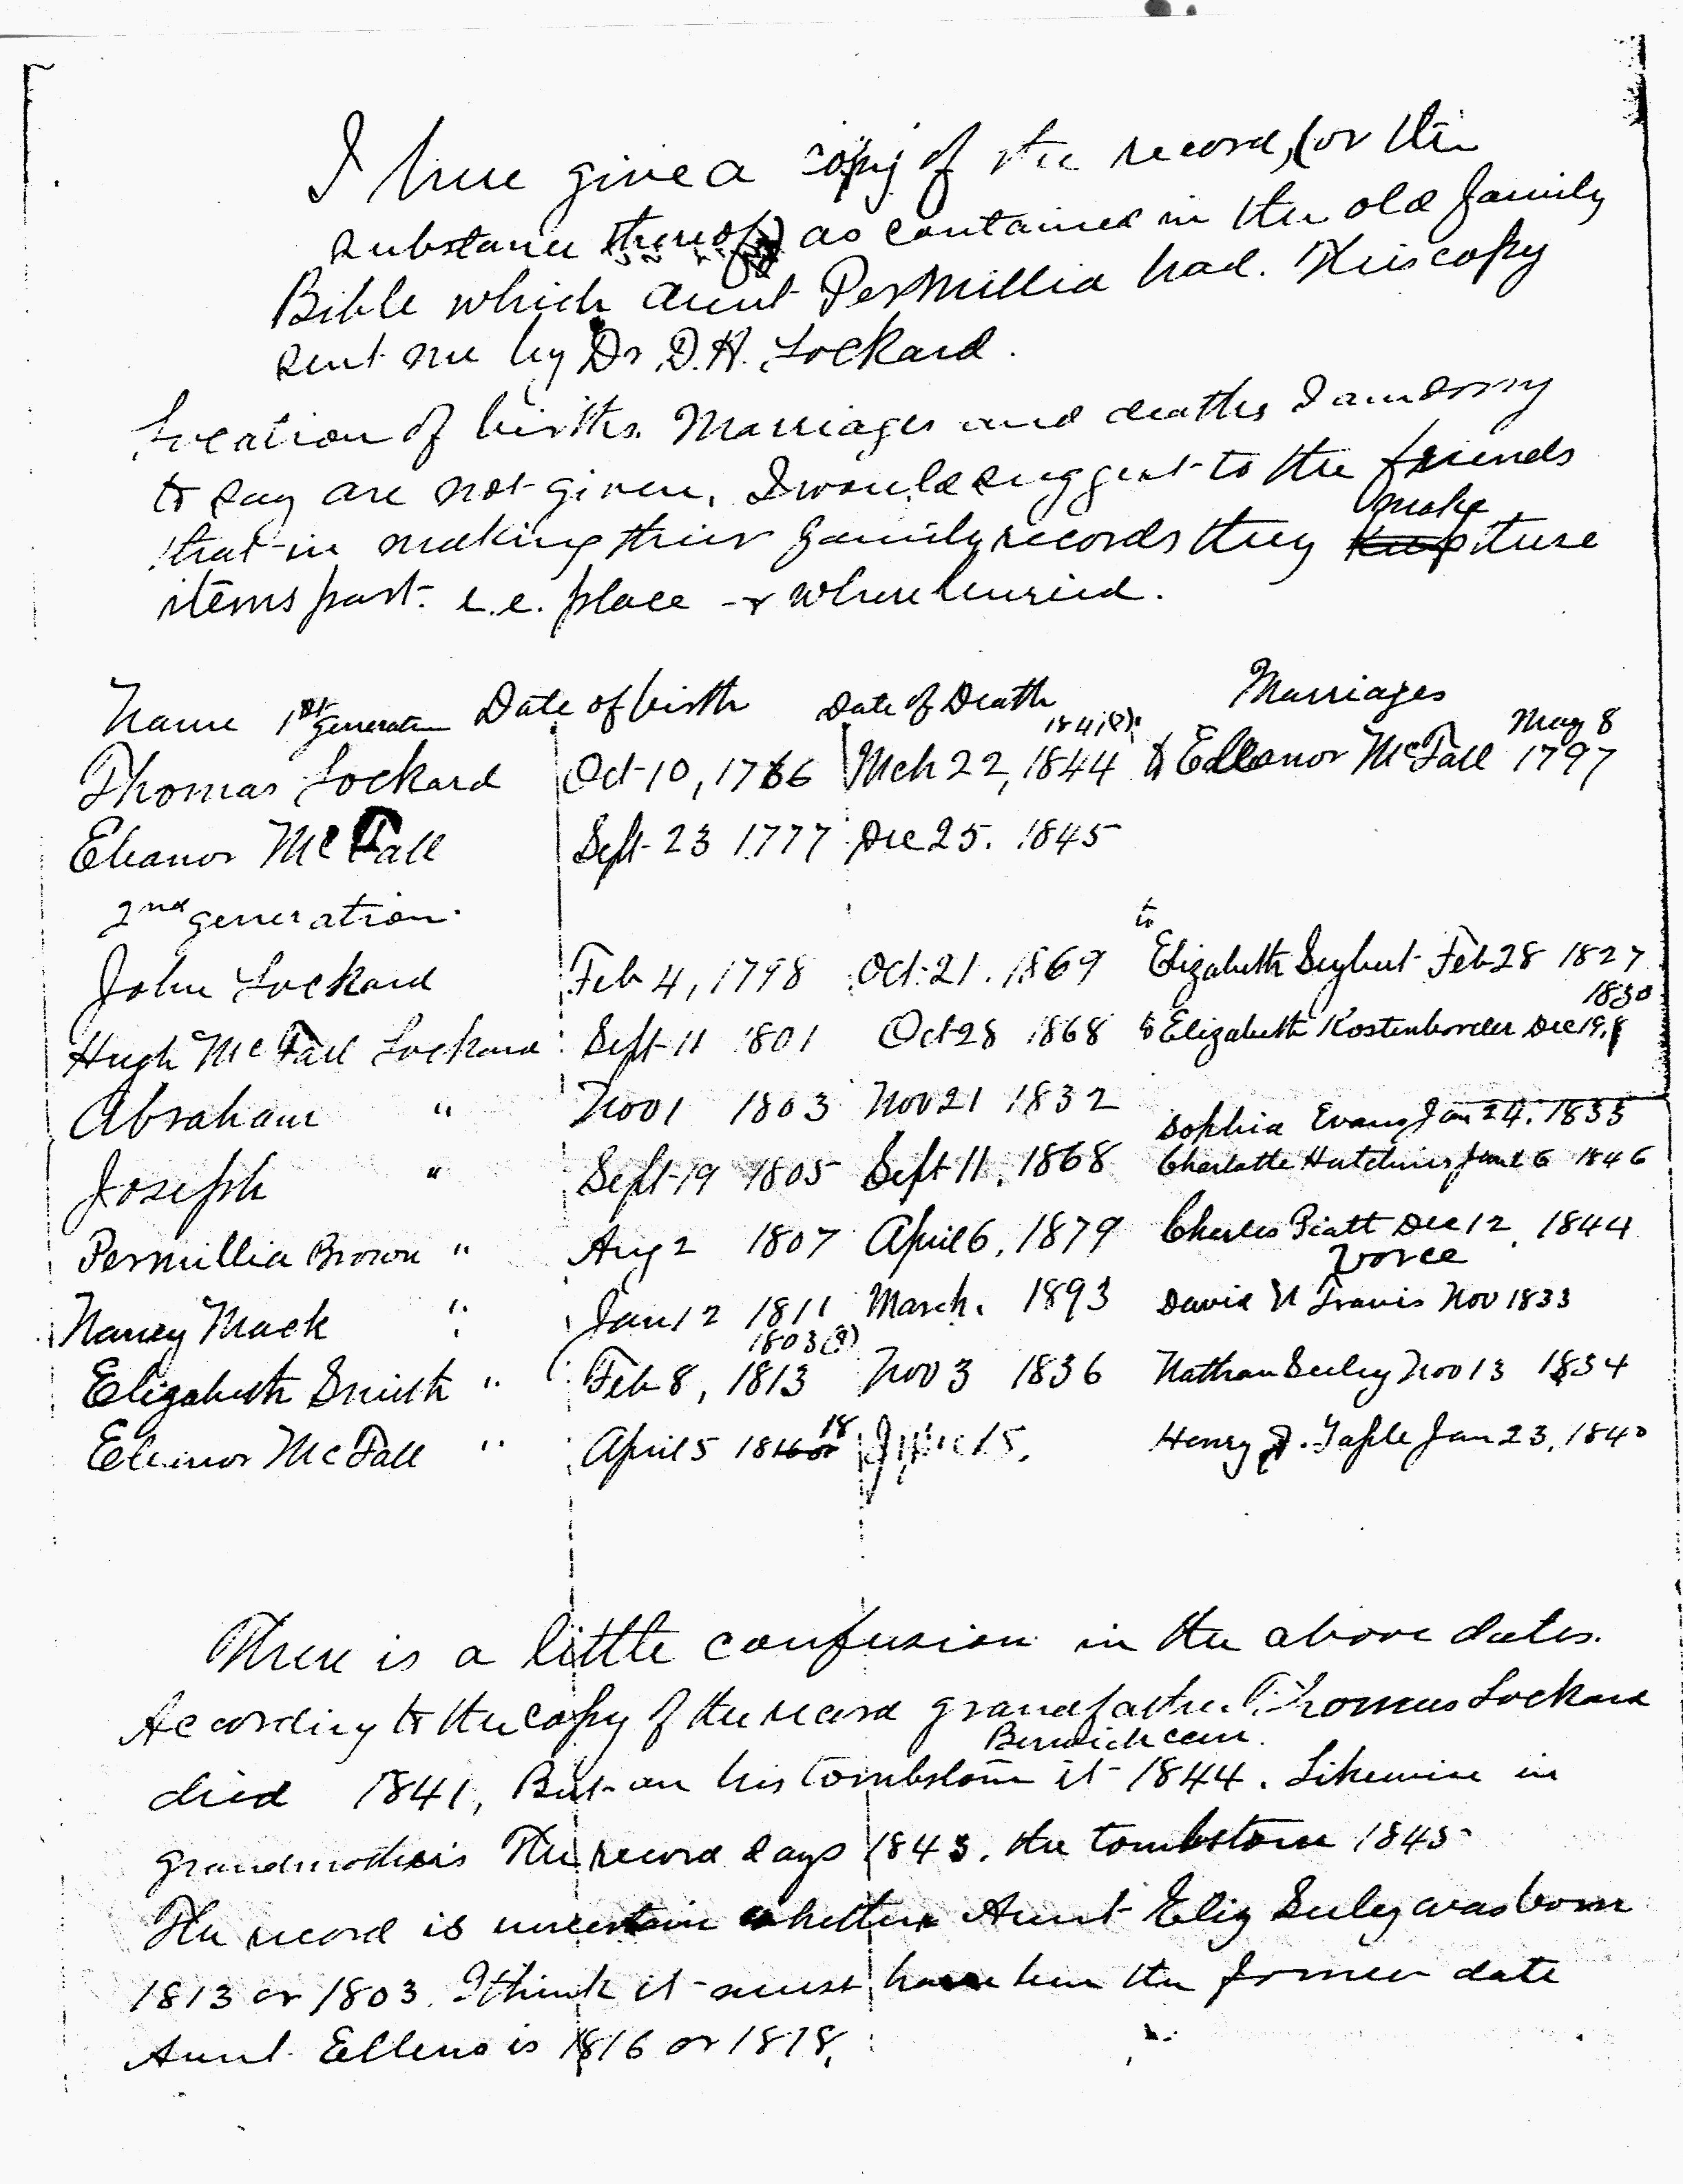 I here give a copy of the record, (or the
substance thereof) as contained in the old family
Bible which Aunt Permillia had. This copy
sent me by Dr D. H. Lockard.
Location of births. Marriages and deaths I am sorry
to say are not given. I would suggest to the friends
make
that in making their family records they keep these
items part. i.e. place & where buried.
Name 1st Generation Date of birth Date of Death Marriages
1841(?). May 8
Thomas Lockard Oct 10, 1766 Mch 22, 1844 to Elleanor McFall 1797
Eleanor McFall Sept 23 1777 Dec 25. 1845
2nd generation.
to
John Lockard Feb 4, 1798 Oct. 21. 1869 Elizabeth Seybert Feb 28 1827
1830
Hugh McFall Lockard Sept 11 1801 Oct 28 1868 to Elizabeth Kostenborder Dec 19,
Abraham " Nov 1 1803 Nov 21 1832
Sophia Evans Jan 24. 1833
Joseph " Sept 19 1805 Sept 11. 1868 Charlotte Hutchins June 6 1846
Permillia Brown " Aug 2 1807 April 6, 1879 Charles Piatt Dec 12, 1844
Vorce
Nancy Mack " Jan 12 1811 March. 1893 David N Travis Nov 1833
1803(?)
Elizabeth Smith " Feb 8, 1813 Nov 3 1836 Nathan Seeley Nov 13 1834
18
Eleanor McFall " April 5 1816 or June 15. Henry J. Taple Jan 23, 1840
There is a little confusion in the above dates.
According to the copy of the record grandfather Thomas Lockard
Berwick cem.
died 1841, But on his tombstone it 1844. Likewise in
grandmothers The record says 1843. the tombstone 1845
The record is uncertain whether Aunt Eliz Seeley was born
1813 or 1803. I think it must have been the former date
Aunt Ellens is 1816 or 1818.